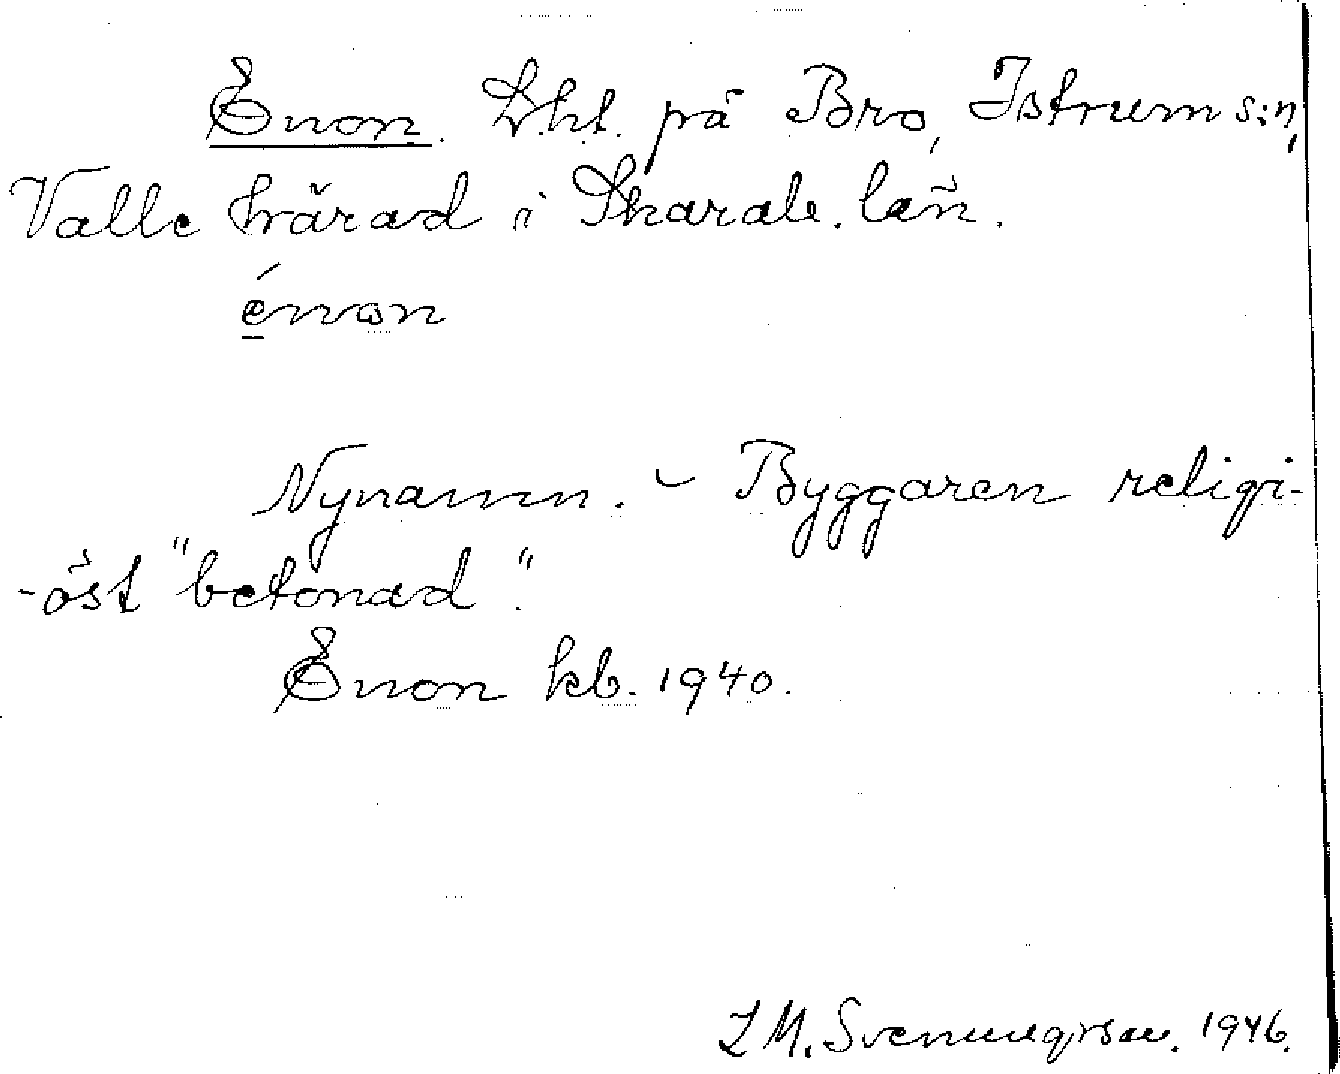 Enon. Lht. på Bro, Istrum s:n,
Valle härad i Skarab. län.
énon
Nynamn. - Byggaren religi-
-öst "betonad".
Enon kb. 1940.
L M. Svenungsson. 1946.